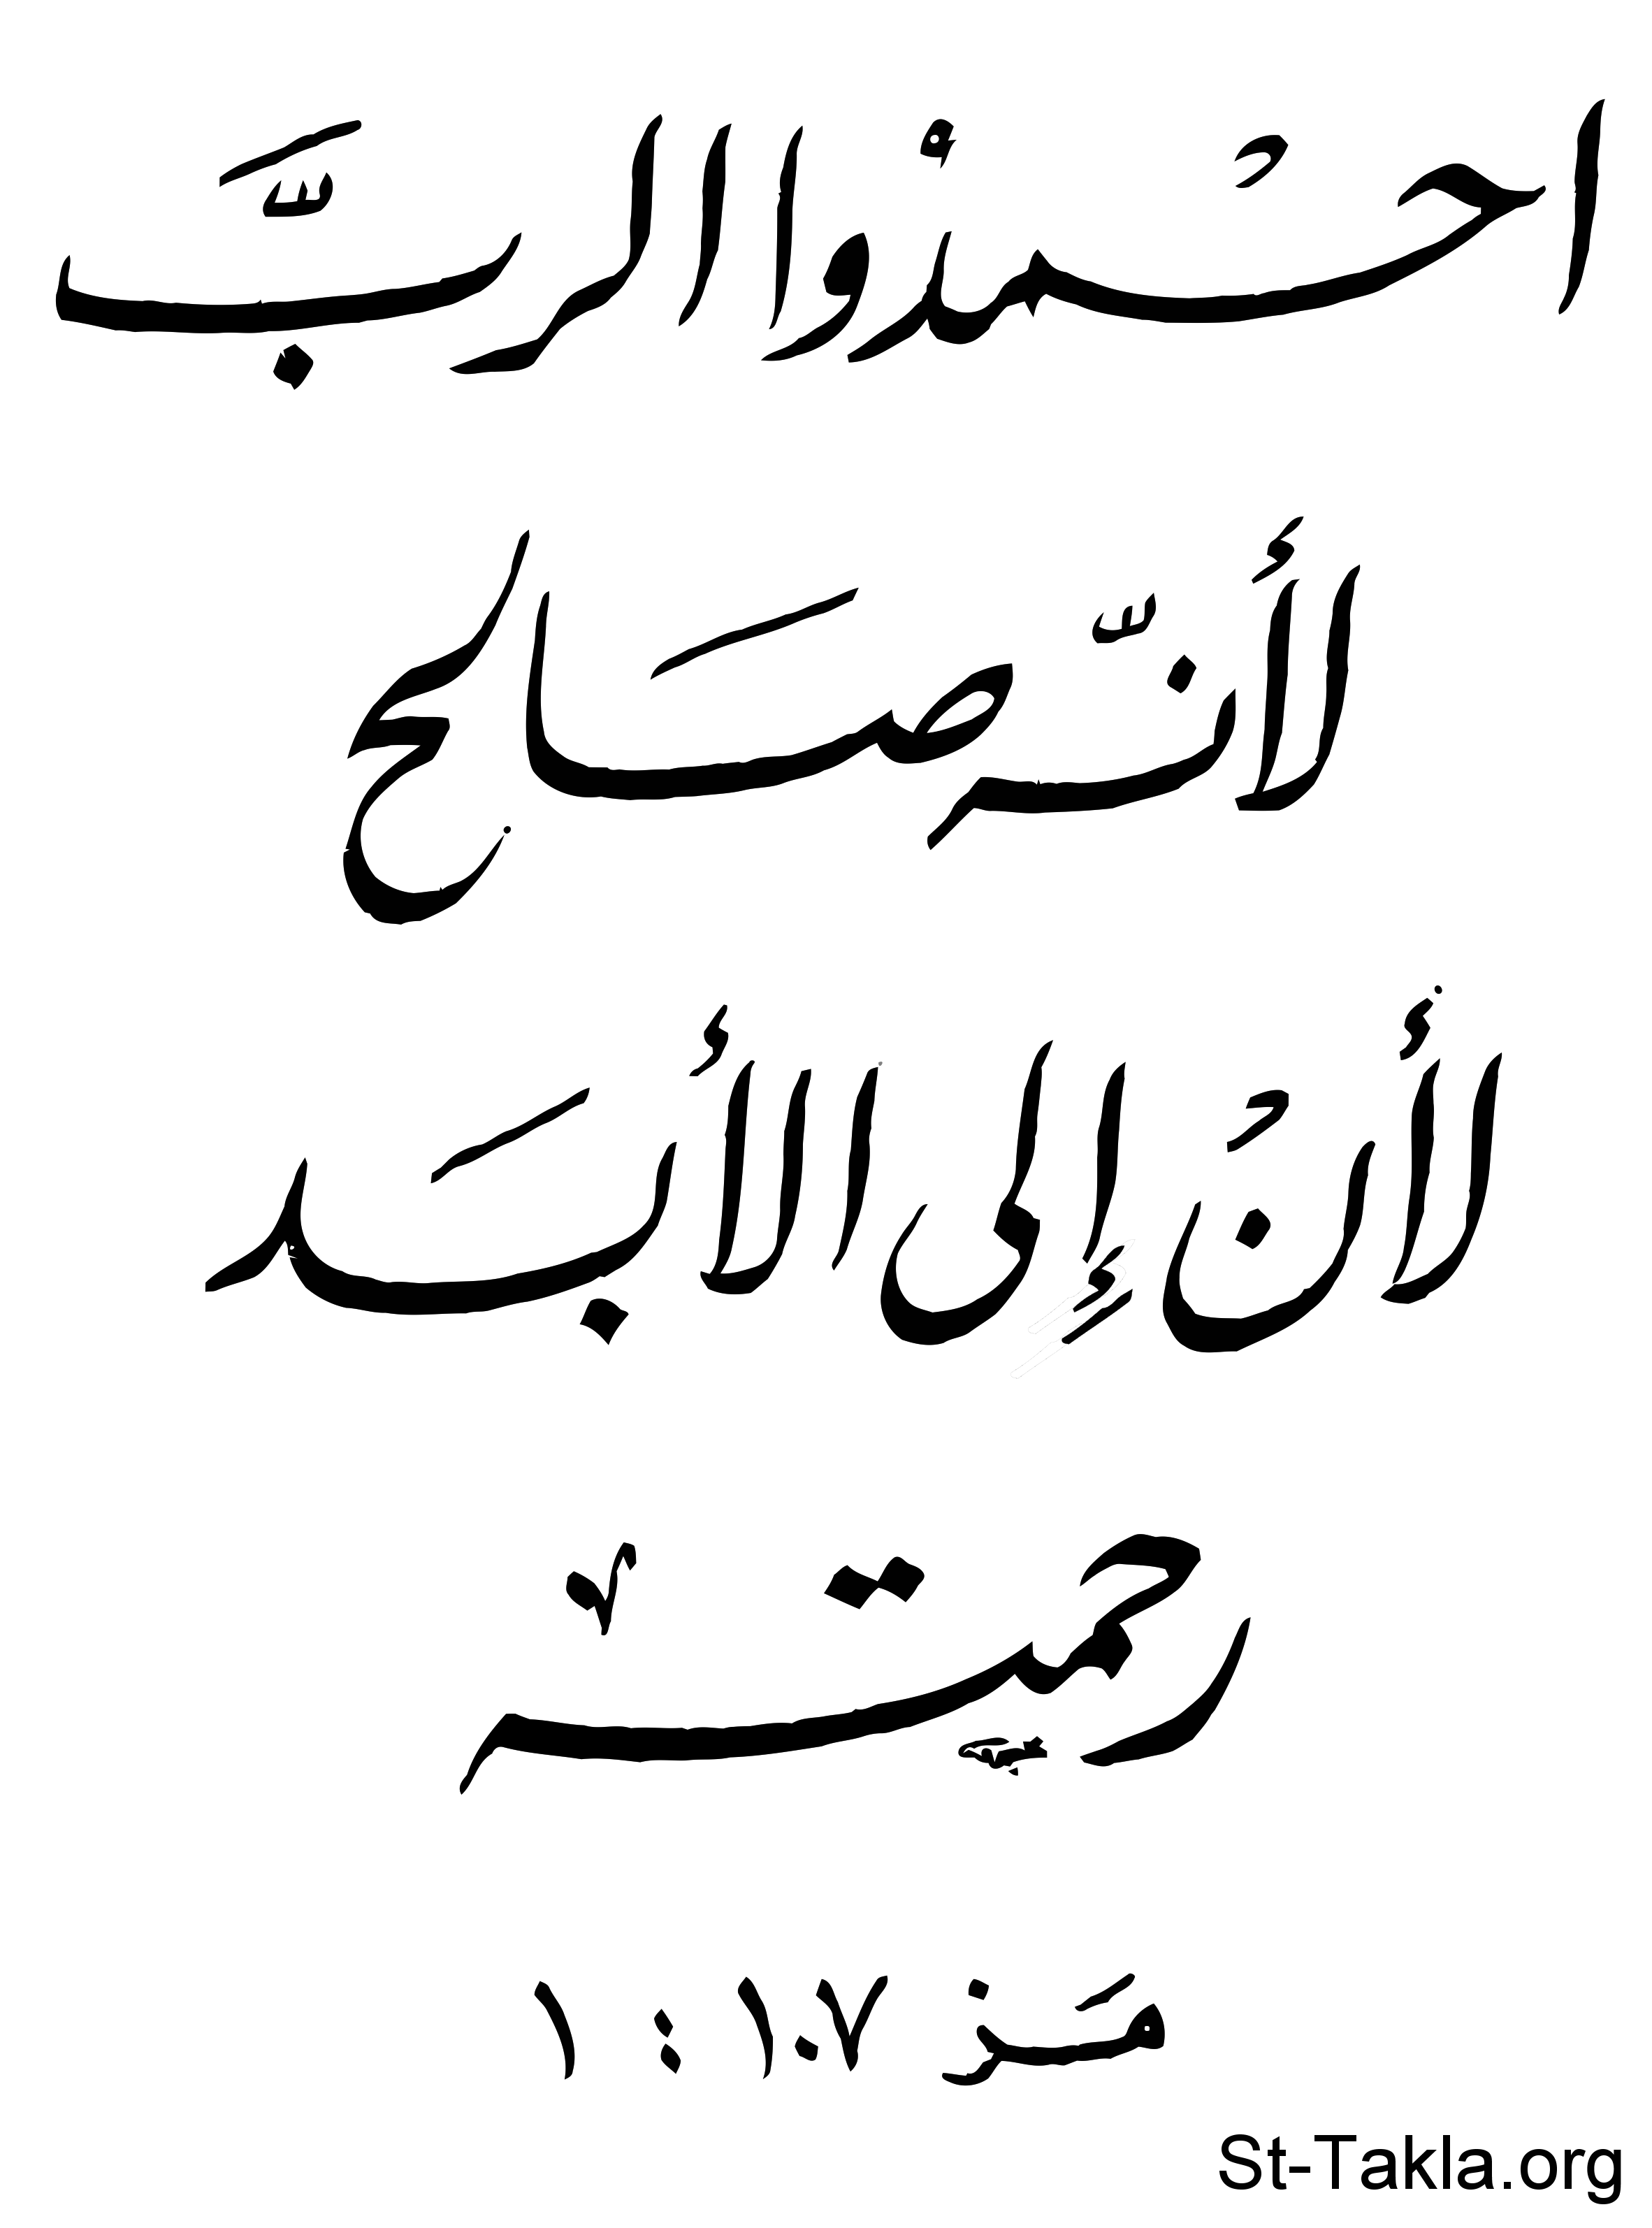 احْمَدُوا الرَبَّ
لأَنَّه صَالح
لأَنْ إِلى الأَبَد
رحمته
مَز ١٠٧ : ١
St-Takla.org